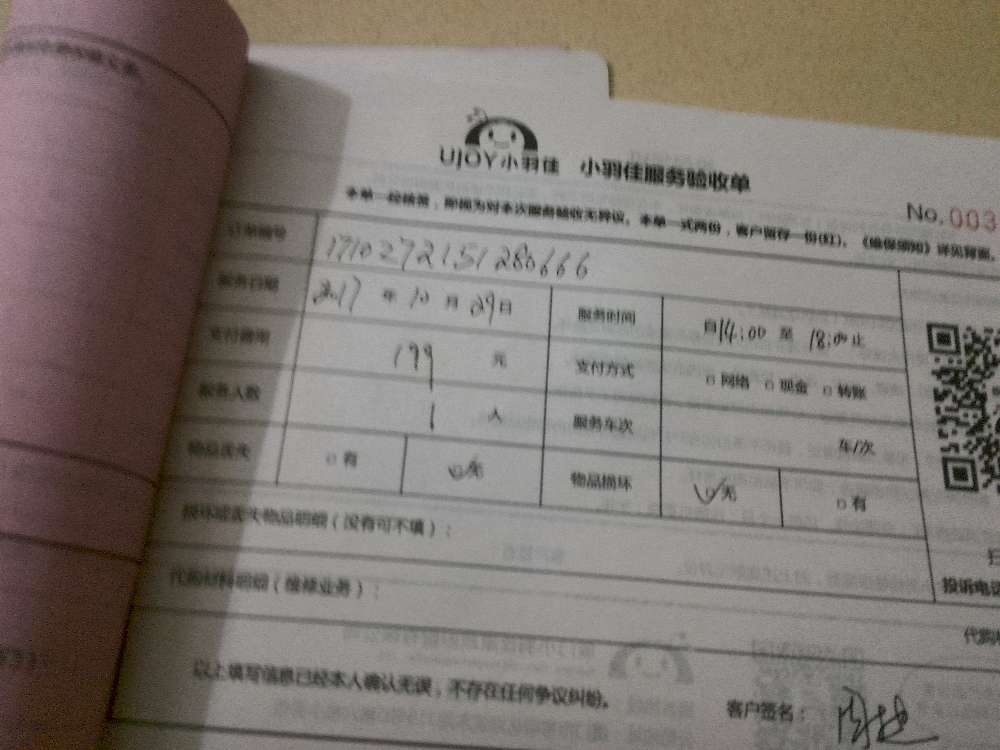 UJOY小羽佳 小羽佳服务验收单
本单一经核签，即视为对本次服务验收无异议。本单一式两份，客户留存一份(红)。《维保须知》详见背面。
No.003
订单编号 1710272151280666
服务日期 2017 年 10 月 29 日 服务时间 自14:00 至 18:00 止
支付费用 199 元 支付方式 □ 网络 □ 现金 □ 转账
服务人数 1 人 服务车次 车/次
物品丢失 □ 有 □ 无 物品损坏 □ 无 □ 有
损坏或丢失物品明细（没有可不填）：
投诉电
代购材料明细（维修业务）：
代购
以上填写信息已经本人确认无误，不存在任何争议纠纷。
客户签名：